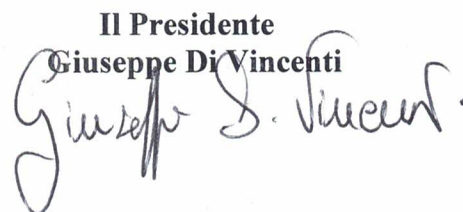 Il Presidente
Giuseppe Di Vincenti
Giuseppe D. Vincenti